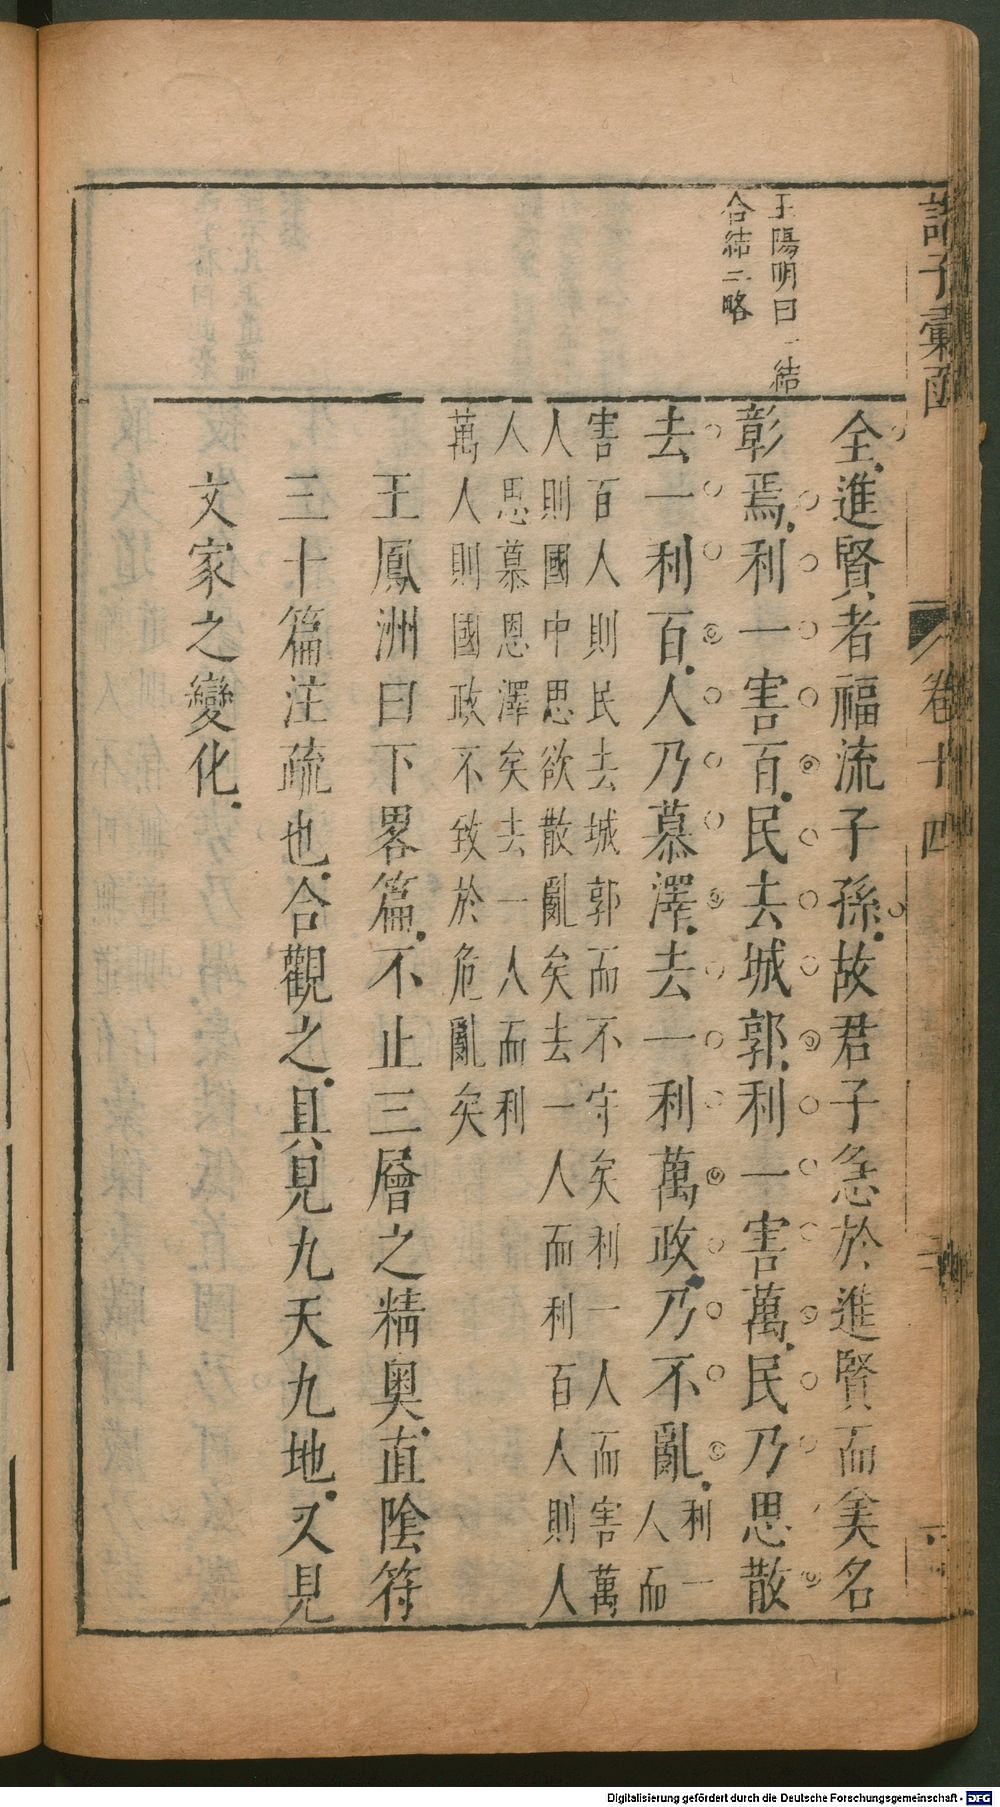 諸子彙函
卷十四
王陽明曰一結
合結三略
全進賢者福流子孫故君子急於進賢而美名
彰焉利一害百民去城郭利一害萬民乃思散
去一利百人乃慕澤去一利萬政乃不亂利一
人而
害百人則民去城郭而不守矣利一人而害萬
人則國中思欲散亂矣去一人而利百人則人
人思慕恩澤矣去一人而利
萬人則國政不致於危亂矣
王鳳洲曰下畧篇不止三層之精奧直陰符
三十篇注疏也合觀之具見九天九地又見
文家之變化
Digitalisierung gefördert durch die Deutsche Forschungsgemeinschaft - DFG